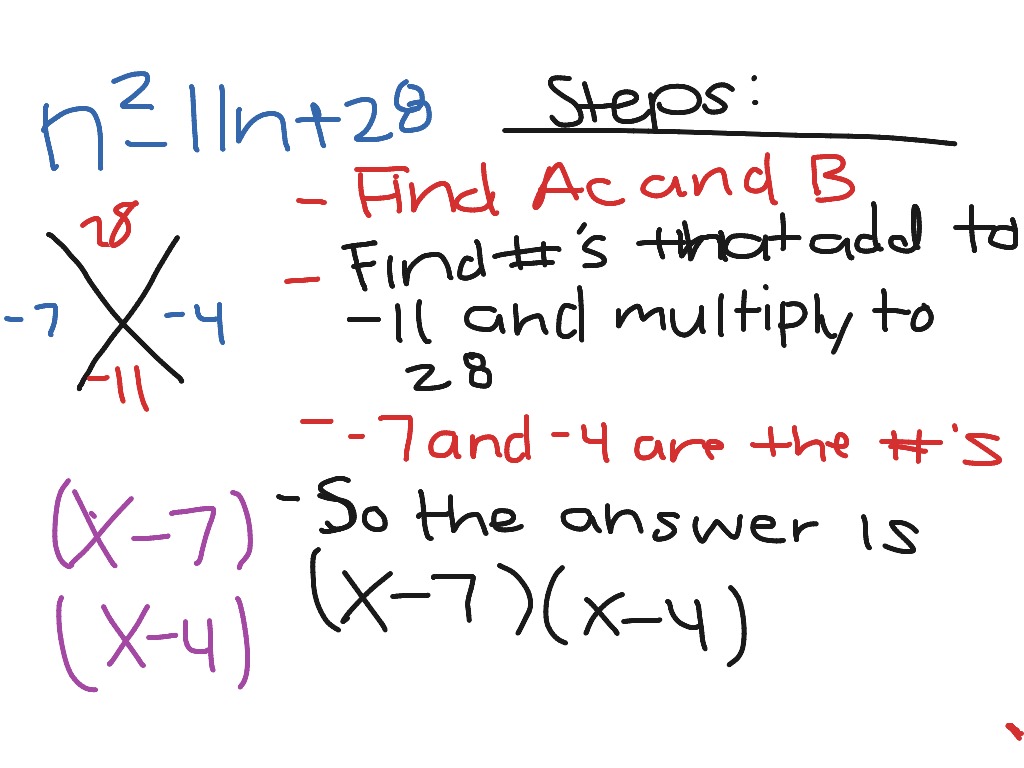 n²-11n+28
Steps:
- Find Ac and B
28
- Find #'s that add to
-7 -4
-11 and multiply to
-11
28
- -7 and -4 are the #'s
(x-7)
- So the answer is
(x-7)(x-4)
(x-4)